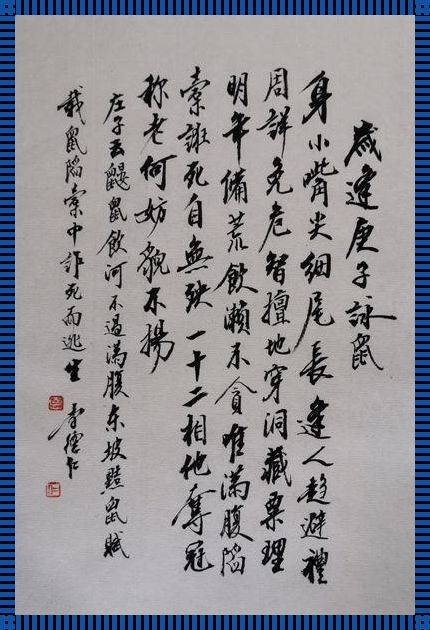 歲逢庚子詠鼠
身小嘴尖細尾長逢人趋避禮
周詳免危智擅地穿洞藏粟理
明年備荒飲瀨不貪唯滿腹陷
橐詐死自無殃一十二相他奪冠
称老何妨貌不揚
庄子云鼴鼠飲河不過滿腹东坡黠鼠賦
載鼠陷橐中詐死而逃生 李德仁